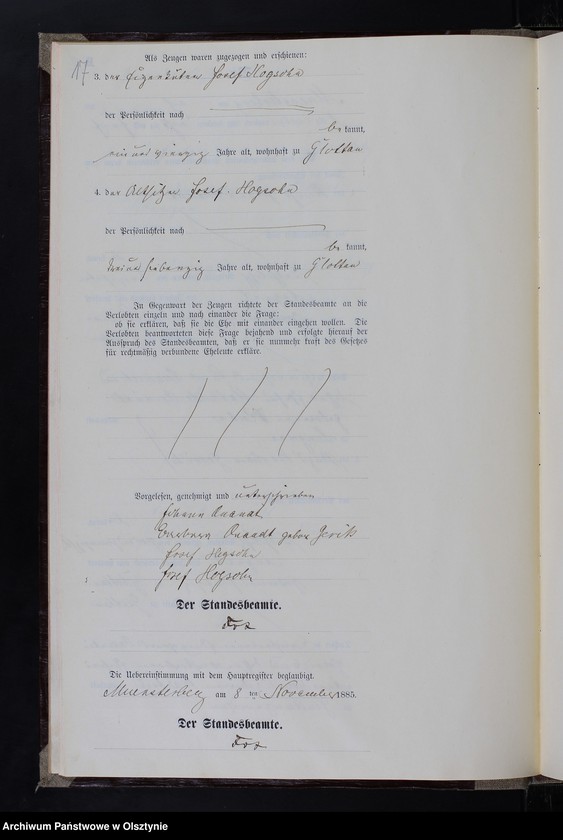 17
Als Zeugen waren zugezogen und erschienen:
3. der Eigenkäthner Josef Hogsohn
der Persönlichkeit nach
be kannt,
ein und vierzig Jahre alt, wohnhaft zu Glottau
4. der Altsitzer Josef Hogsohn
der Persönlichkeit nach
be kannt,
drei und siebenzig Jahre alt, wohnhaft zu Glottau
In Gegenwart der Zeugen richtete der Standesbeamte an die
Verlobten einzeln und nach einander die Frage:
ob sie erklären, daß sie die Ehe mit einander eingehen wollen. Die
Verlobten beantworteten diese Frage bejahend und erfolgte hierauf der
Ausspruch des Standesbeamten, daß er sie nunmehr kraft des Gesetzes
für rechtmäßig verbundene Eheleute erkläre.
Vorgelesen, genehmigt und unterschrieben
Johann Quandt
Barbara Quandt geborn
Josef Hogsohn
Josef Hogsohn
Der Standesbeamte.
Die Uebereinstimmung mit dem Hauptregister beglaubigt.
Muensterberg am 8 ten November 1885.
Der Standesbeamte.
Archiwum Państwowe w Olsztynie